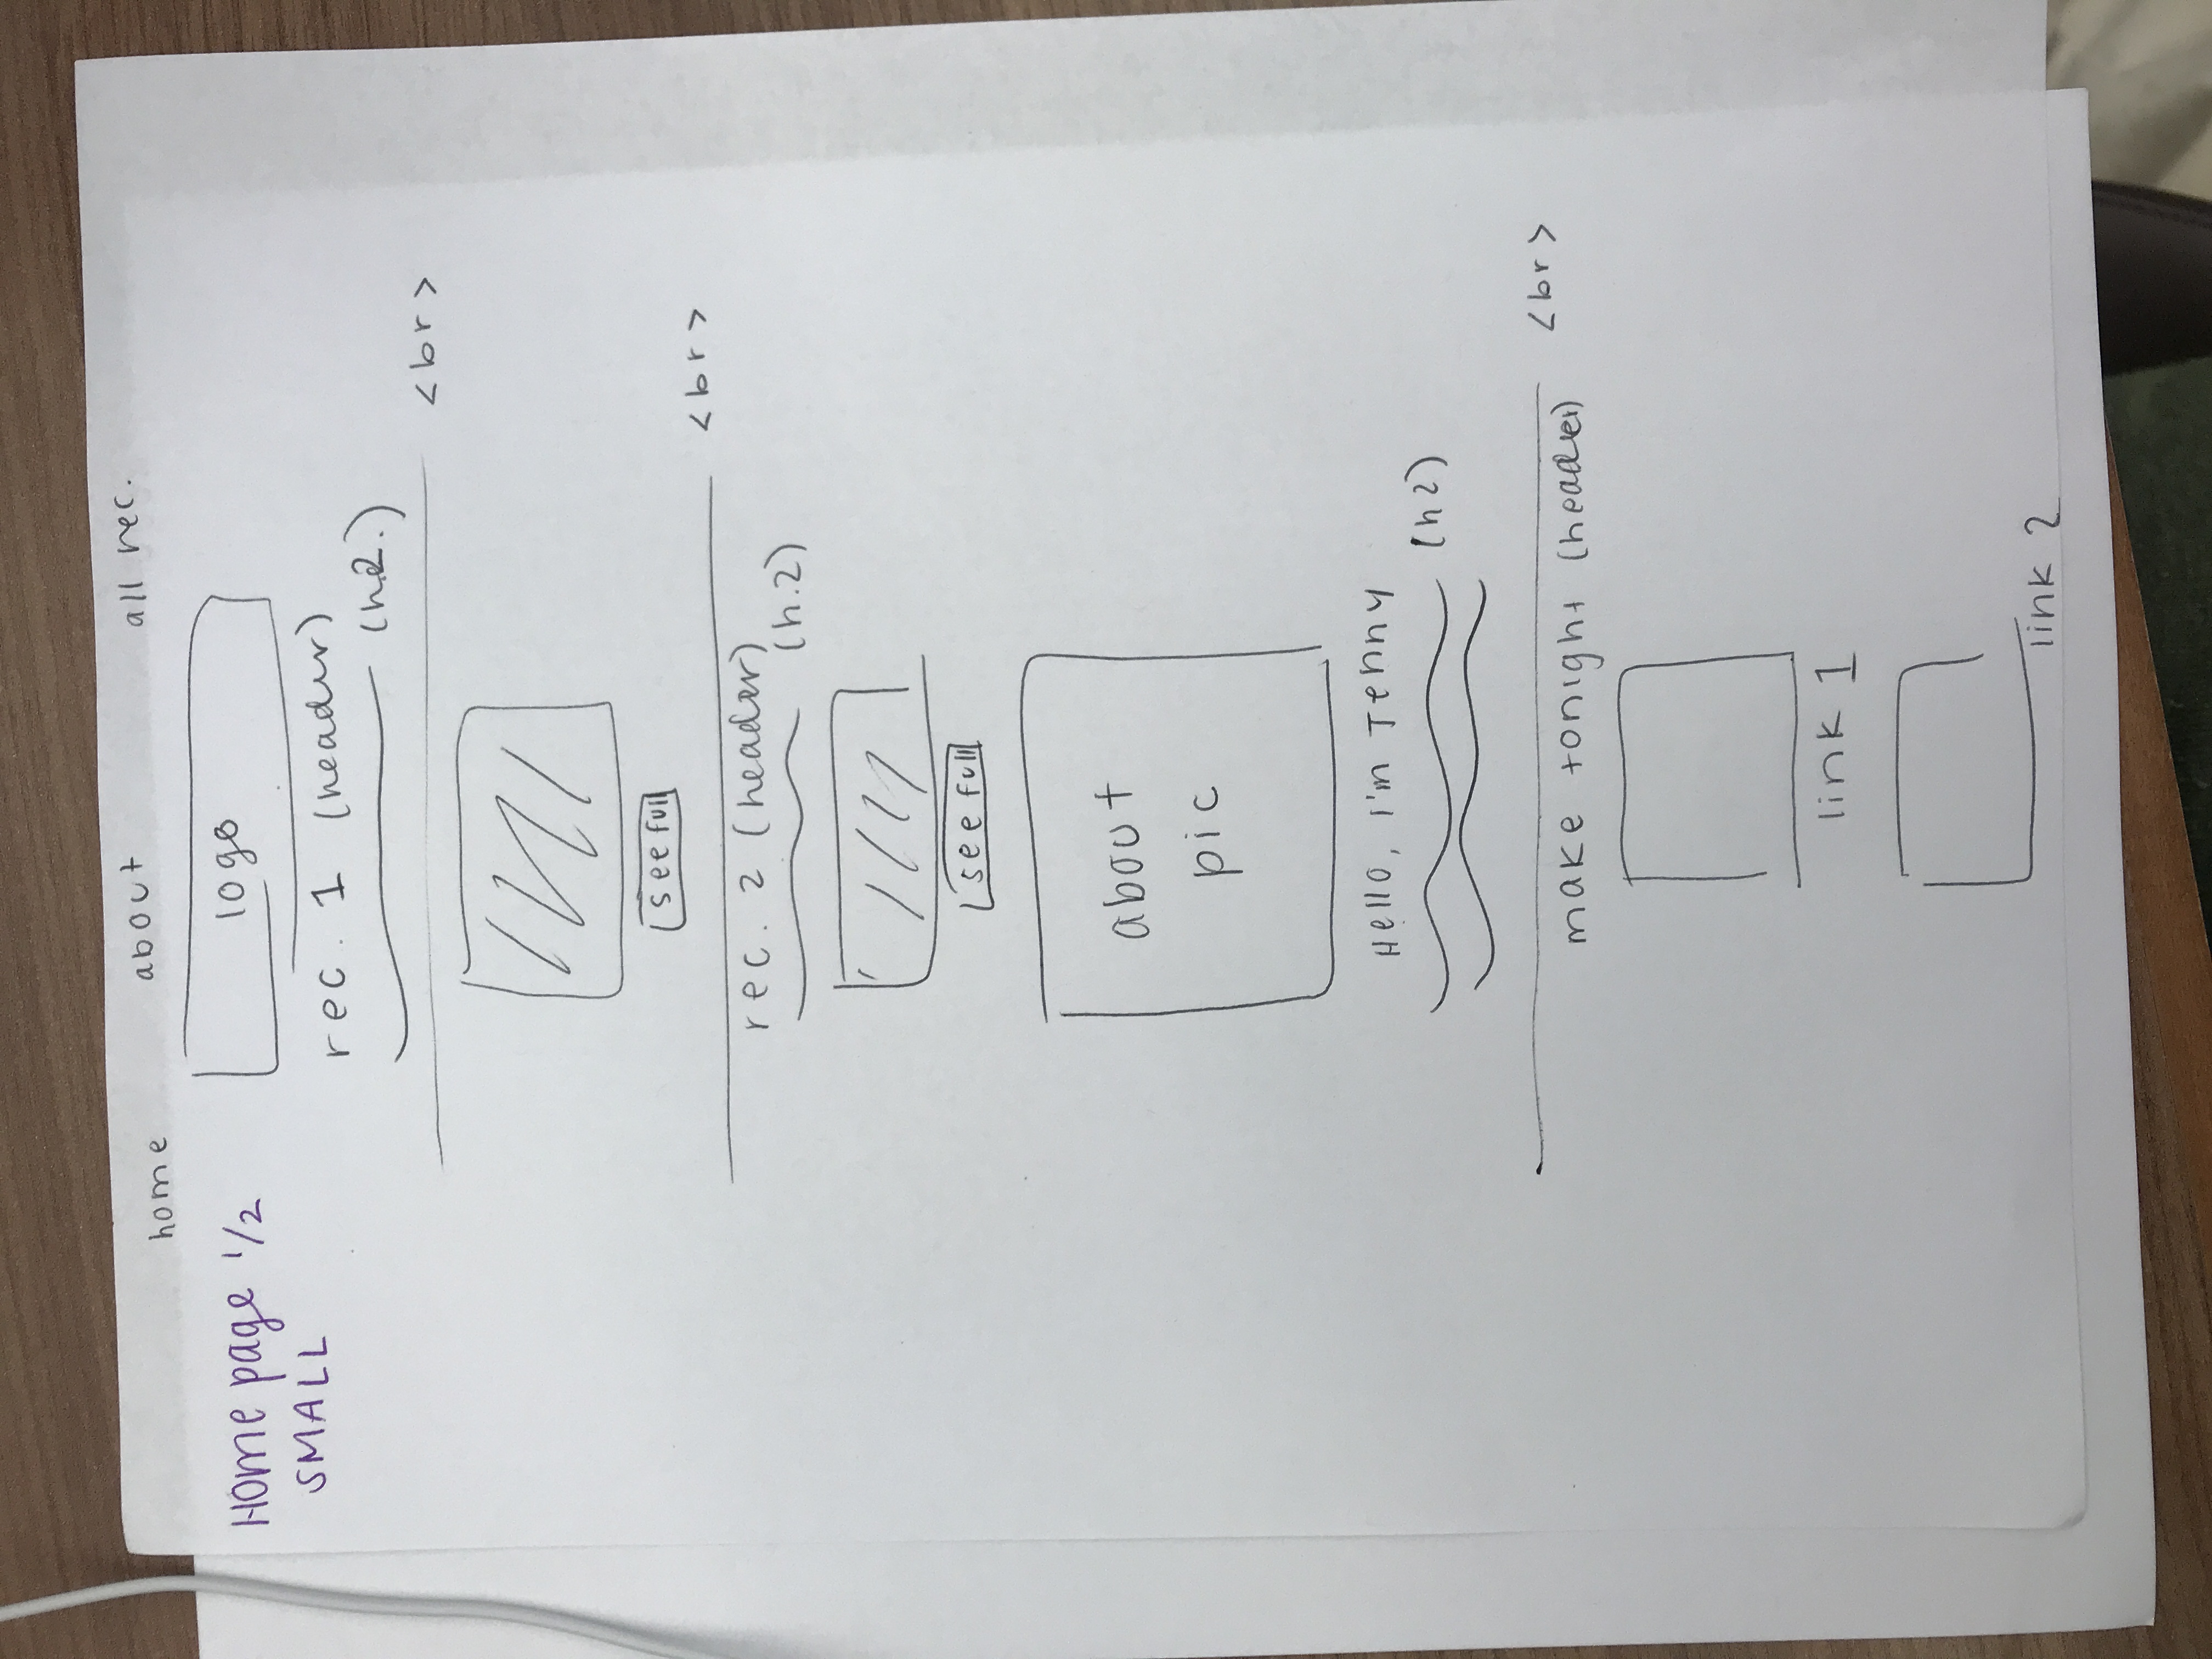 home about all rec.
Home page 1/2
SMALL
logo
rec. 1 (header)
(h2.)
<br>
see full
<br>
rec. 2 (header)
(h.2)
see full
about
pic
Hello, I'm Jenny
(h2)
<br>
make tonight (header)
link 1
link 2